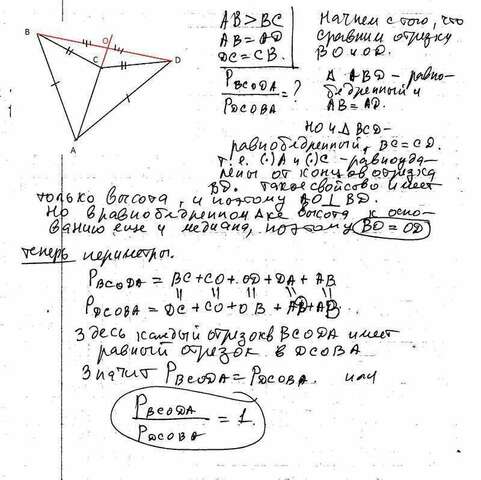 B
O
D
C
A
1
AB > BC
AB = AD
DC = CB.
P BCODA / P DCOBA = ?
Начнем с того, что
сравним отрезки
BO и OD.
Δ ABD – равно-
бедренный и
AB = AD.
Но и Δ BCD –
равнобедренный, BC = CD.
т.е. (·)A и (·)C – равноуда-
лены от концов отрезка
BD. Такое свойство имеет
только высота, и поэтому AO ⊥ BD.
Но в равнобедренном Δке высота к осно-
ванию еще и медиана, поэтому BO = OD
Теперь периметры.
P BCODA = BC + CO + OD + DA + AB
P DCOBA = DC + CO + OB + AB + AD
Здесь каждый отрезок в BCODA имеет
равный отрезок в DCOBA
Значит P BCODA = P DCOBA. или
P BCODA / P DCOBA = 1.